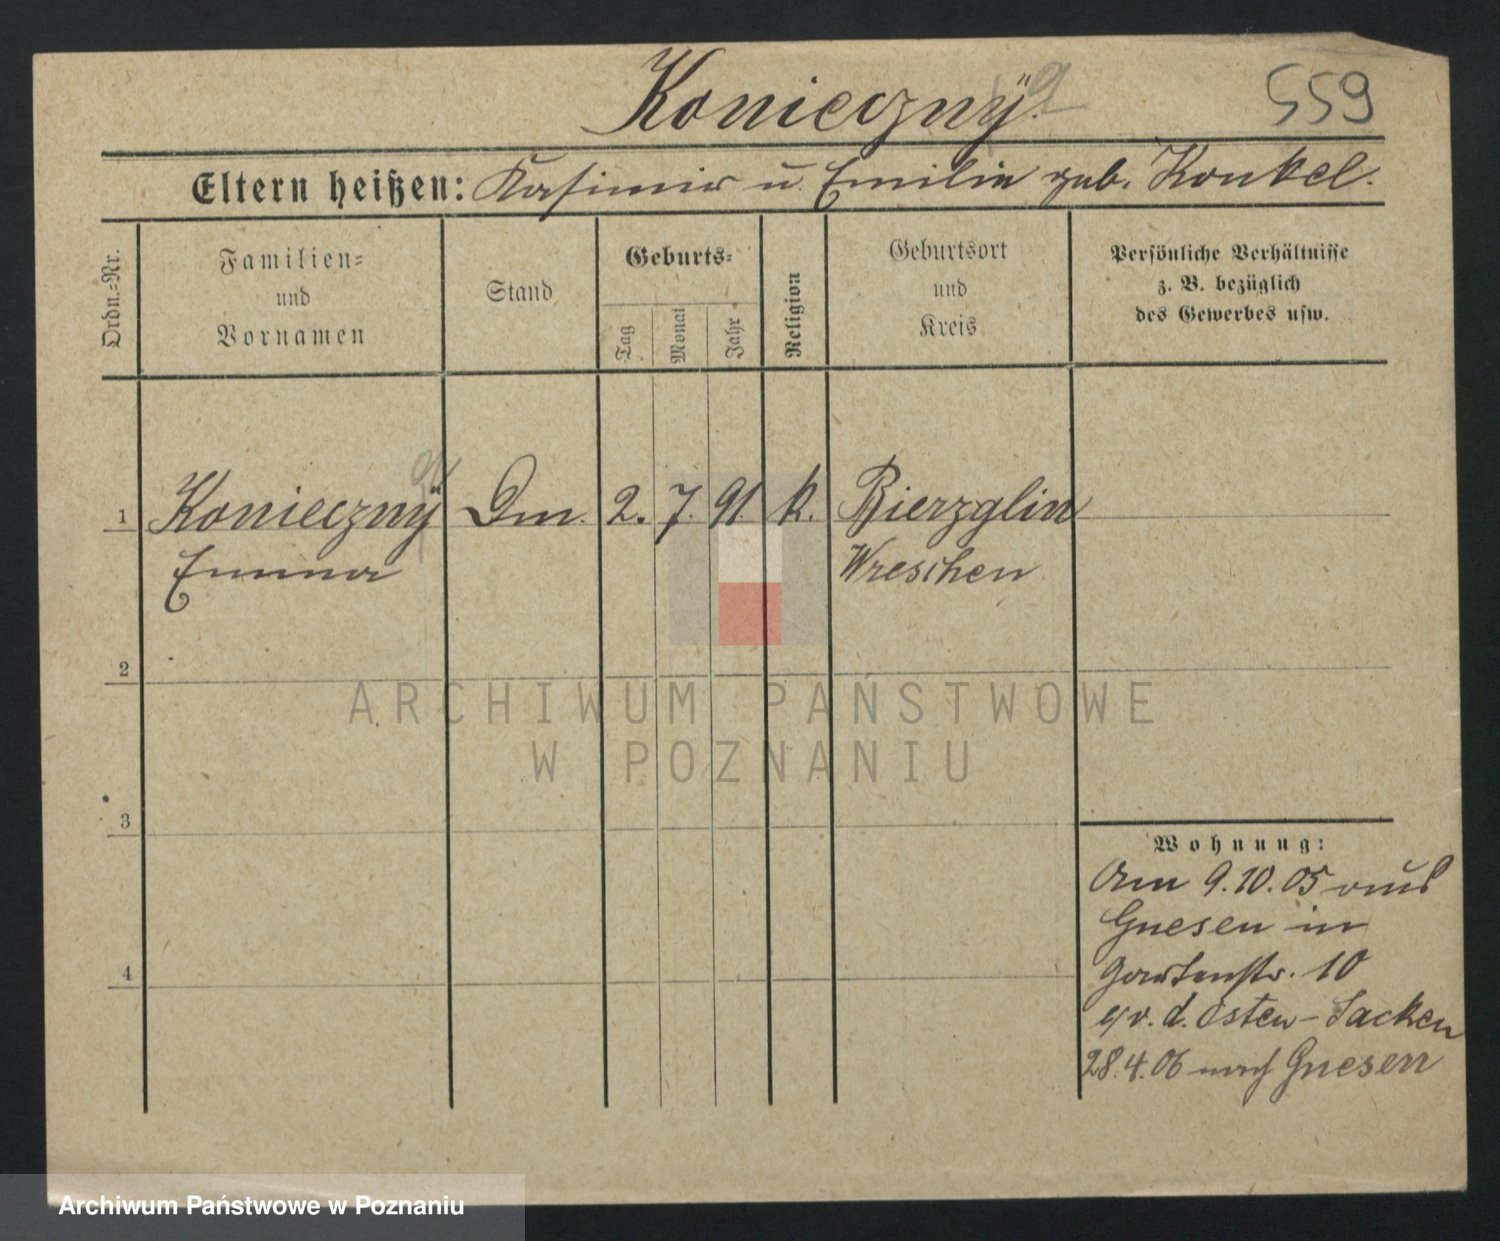 Koniecznÿ.
559
Eltern heißen: Kasimir u. Emilie geb. Konkel.
Ordn.=Nr.
Familien=
und
Vornamen
Stand
Geburts=
Tag
Monat
Jahr
Religion
Geburtsort
und
Kreis
Persönliche Verhältnisse
z. B. bezüglich
des Gewerbes usw.
1
Koniecznÿ
Emma
Dm.
2.
7.
91.
k.
Bierzglin
Wreschen
2
3
4
Wohnung:
Am 9.10.05 aus
Gnesen in
Gartenstr. 10
v. d. Osten-Sacken
28.4.06 nach Gnesen
ARCHIWUM PAŃSTWOWE
W POZNANIU
Archiwum Państwowe w Poznaniu